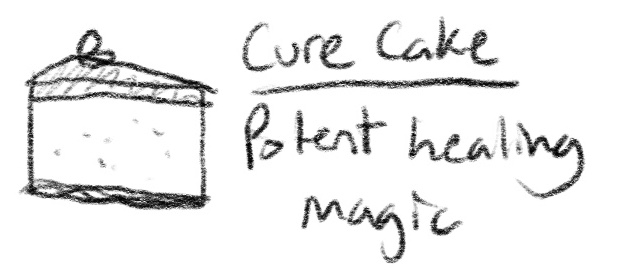 Cure Cake
Potent healing
magic